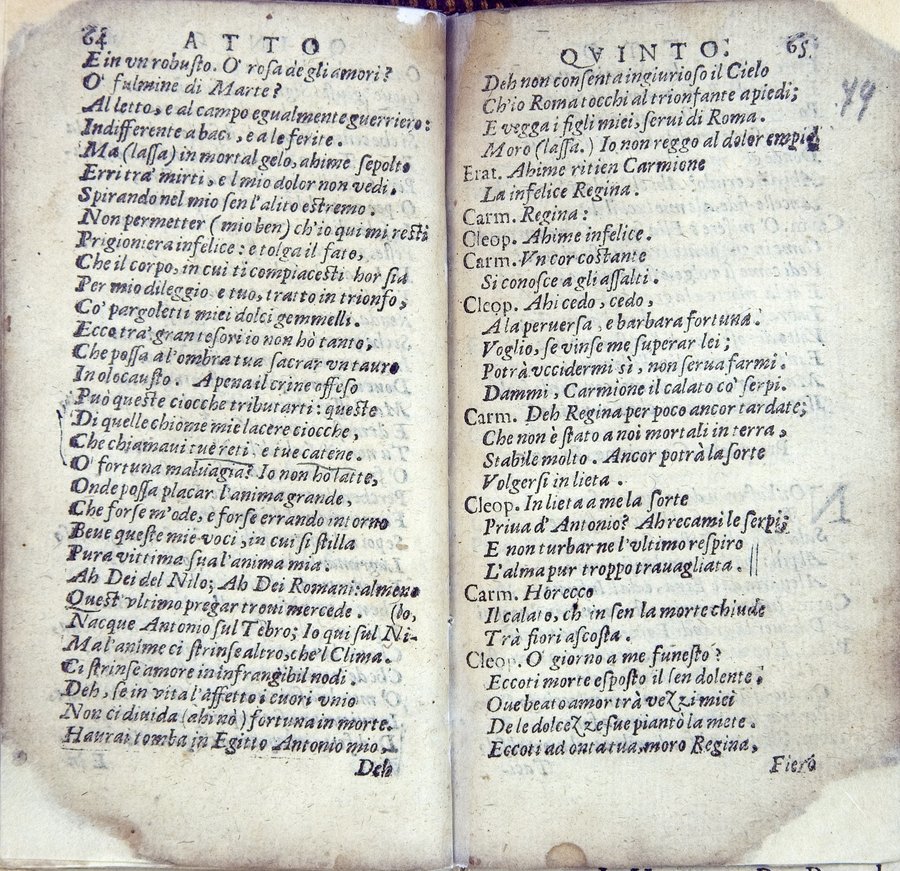 64 ATTO
E in vn robusto. O' rosa de gli amori?
O' fulmine di Marte?
Al letto, e al campo egualmente guerriero:
Indifferente a baci, e a le ferite.
Ma (lassa) in mortal gelo, ahime sepolto
Erri trà mirti, e l mio dolor non vedi.
Spirando nel mio sen l'alito estremo.
Non permetter (mio ben) ch'io qui mi resti
Prigioniera infelice: e tolga il fato,
Che il corpo, in cui ti compiacesti hor sia
Per mio dileggio e tuo, tratto in trionfo,
Co' pargoletti miei dolci gemmelli.
Ecco trà gran tesori io non hò tanto;
Che possa a l'ombra tua sacrar vn tauro
In olocausto. A pena il crine offeso
Può queste ciocche tributarti: queste
Di quelle chiome mie lacere ciocche,
Che chiamavi tue reti, e tue catene.
O' fortuna maluagia? Io non hò latte,
Onde possa placar l'anima grande,
Che forse m'ode, e forse errando intorno
Beue queste mie voci, in cui si stilla
Pura vittima sua l'anima mia.
Ah Dei del Nilo; Ah Dei Romani: almeno
Quest' vltimo pregar troui mercede. (lo,
Nacque Antonio sul Tebro; Io qui sul Ni-
Ma l'anime ci strinse altro, che'l Clima.
Ci strinse amore in infrangibil nodi.
Deh, se in vita l'affetto i cuori vnio
Non ci diuida (ahi nò) fortuna in morte.
Haurai tomba in Egitto Antonio mio,
Deh
QVINTO. 65
44
Deh non consenta ingiurioso il Cielo
Ch'io Roma tocchi al trionfante a piedi;
E vegga i figli miei, serui di Roma.
Moro (lassa.) Io non reggo al dolor empio.
Erat. Ahime ritien Carmione
La infelice Regina.
Carm. Regina:
Cleop. Ahime infelice.
Carm. Vn cor costante
Si conosce a gli assalti.
Cleop. Ahi cedo, cedo,
A la peruersa, e barbara fortuna.
Voglio, se vinse me superar lei;
Potrà vccidermi sì, non serua farmi.
Dammi, Carmione il calato co' serpi.
Carm. Deh Regina per poco ancor tardate;
Che non è stato a noi mortali in terra,
Stabile molto. Ancor potrà la sorte
Volgersi in lieta.
Cleop. In lieta a me la sorte
Priua d' Antonio? Ah recami le serpi;
E non turbarne l'vltimo respiro
L'alma pur troppo trauagliata.
Carm. Hor ecco
Il calato, ch'in sen la morte chiude
Trà fiori ascosta.
Cleop. O' giorno a me funesto?
Eccoti morte esposto il sen dolente,
Oue beato amor trà vezzi miei
De le dolcezze sue piantò la mete.
Eccoti ad onta tua, moro Regina,
Fiero